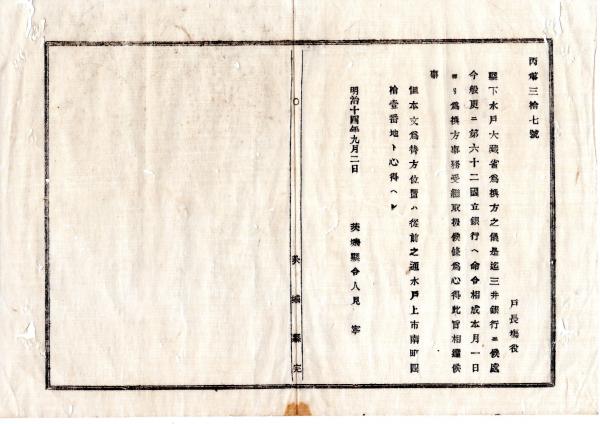 丙第三拾七號
戸長塲役
縣下水戸大藏省爲換方之儀是迄三井銀行ニ候處
今般更ニ第六十二國立銀行ヘ命令相成本月一日
ヨリ爲換方事務受繼取扱候條爲心得此旨相達候
事
但本文爲替方位置ハ從前之通水戸上市南町四
拾壹番地ト心得ヘシ
明治十四年九月二日
茨城縣令人見寧
茨城縣